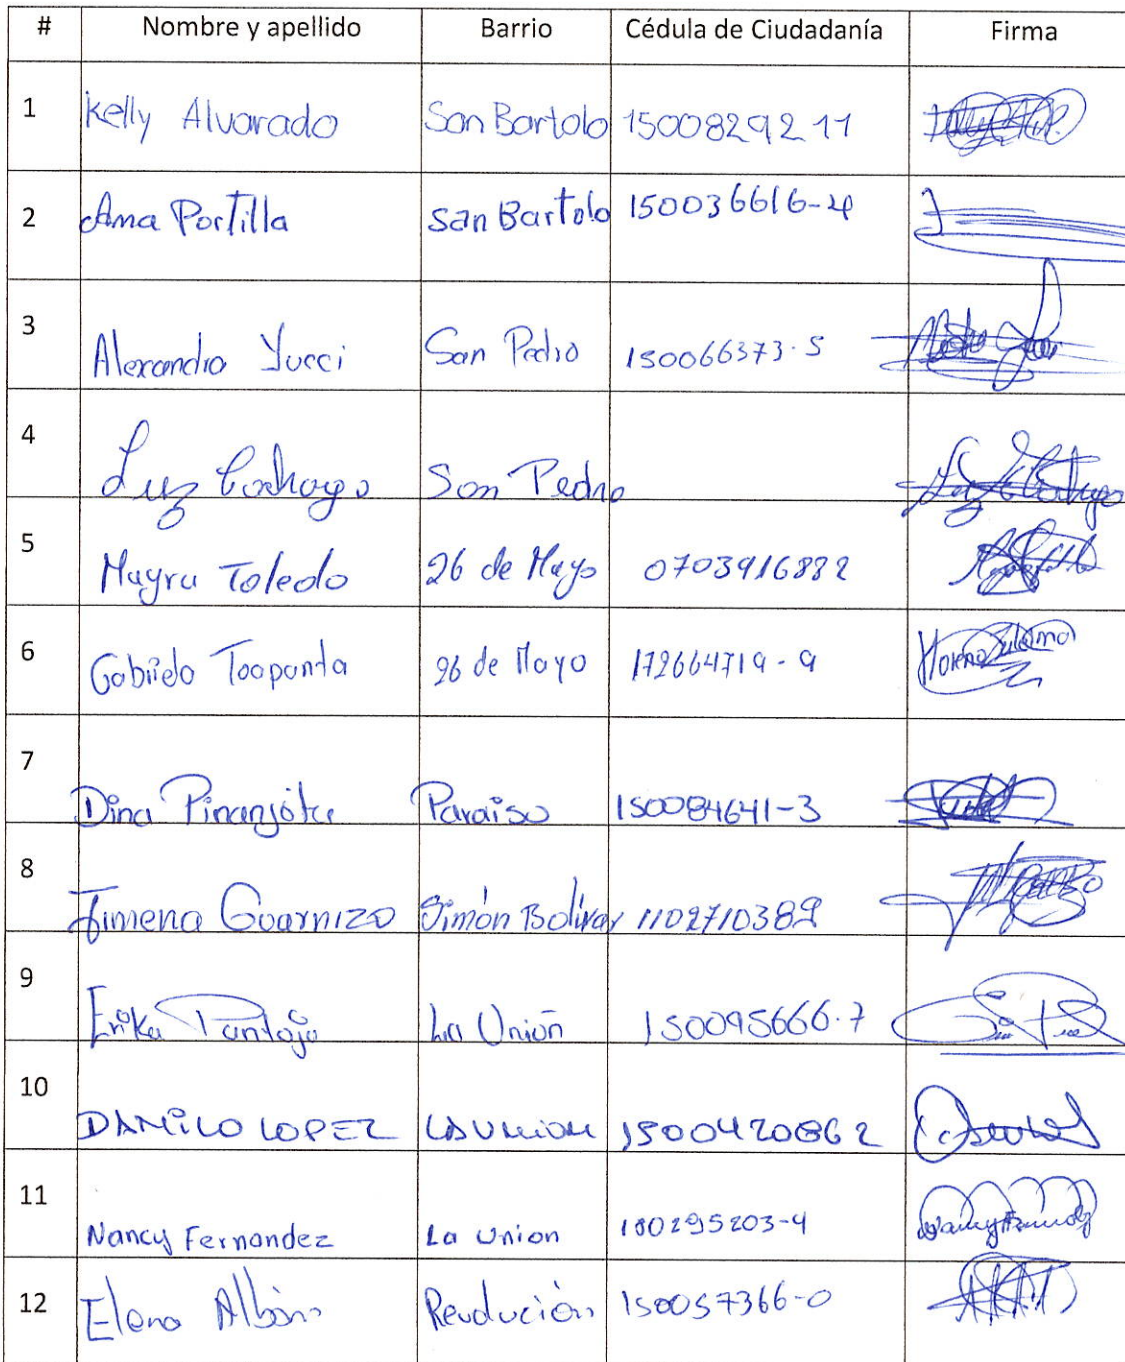 # Nombre y apellido Barrio Cédula de Ciudadanía Firma
1 Kelly Alvarado San Bartolo 1500829211
2 Ana Portilla San Bartolo 150036616-4
3 Alexandra Yucci San Pedro 150066373-5
4 Luz San Pedro
5 Mayra Toledo 26 de Mayo 0703916882
6 Gabriela Toapanta 26 de Mayo 172664719-9
7 Dina Paraiso 150084641-3
8 Jimena Guarnizo Simón Bolivar 1102710389
9 Erika Pantoja La Unión 150095666-7
10 DANILO LOPEZ LA UNION 1500420862
11 Nancy Fernandez La Union 180295203-4
12 Elena Albán Revolución 150057366-0